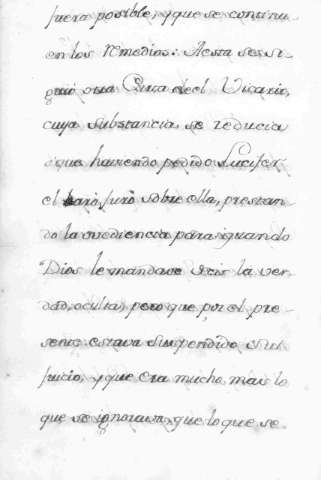 fuera posible, y que se continu-
en los remedios: A esta se si-
guio otra Carta de el Vicario,
cuya substancia, se reducia
a que haviendo pedido Lucifer
el juro sobre ella, prestan-
do la ovediencia para quando
Dios le mandase decir la ver-
dad, oculta, pero que por el pre-
sente estava suspendido
juicio, y que era mucho, mas lo
que se ignorava, que lo que se